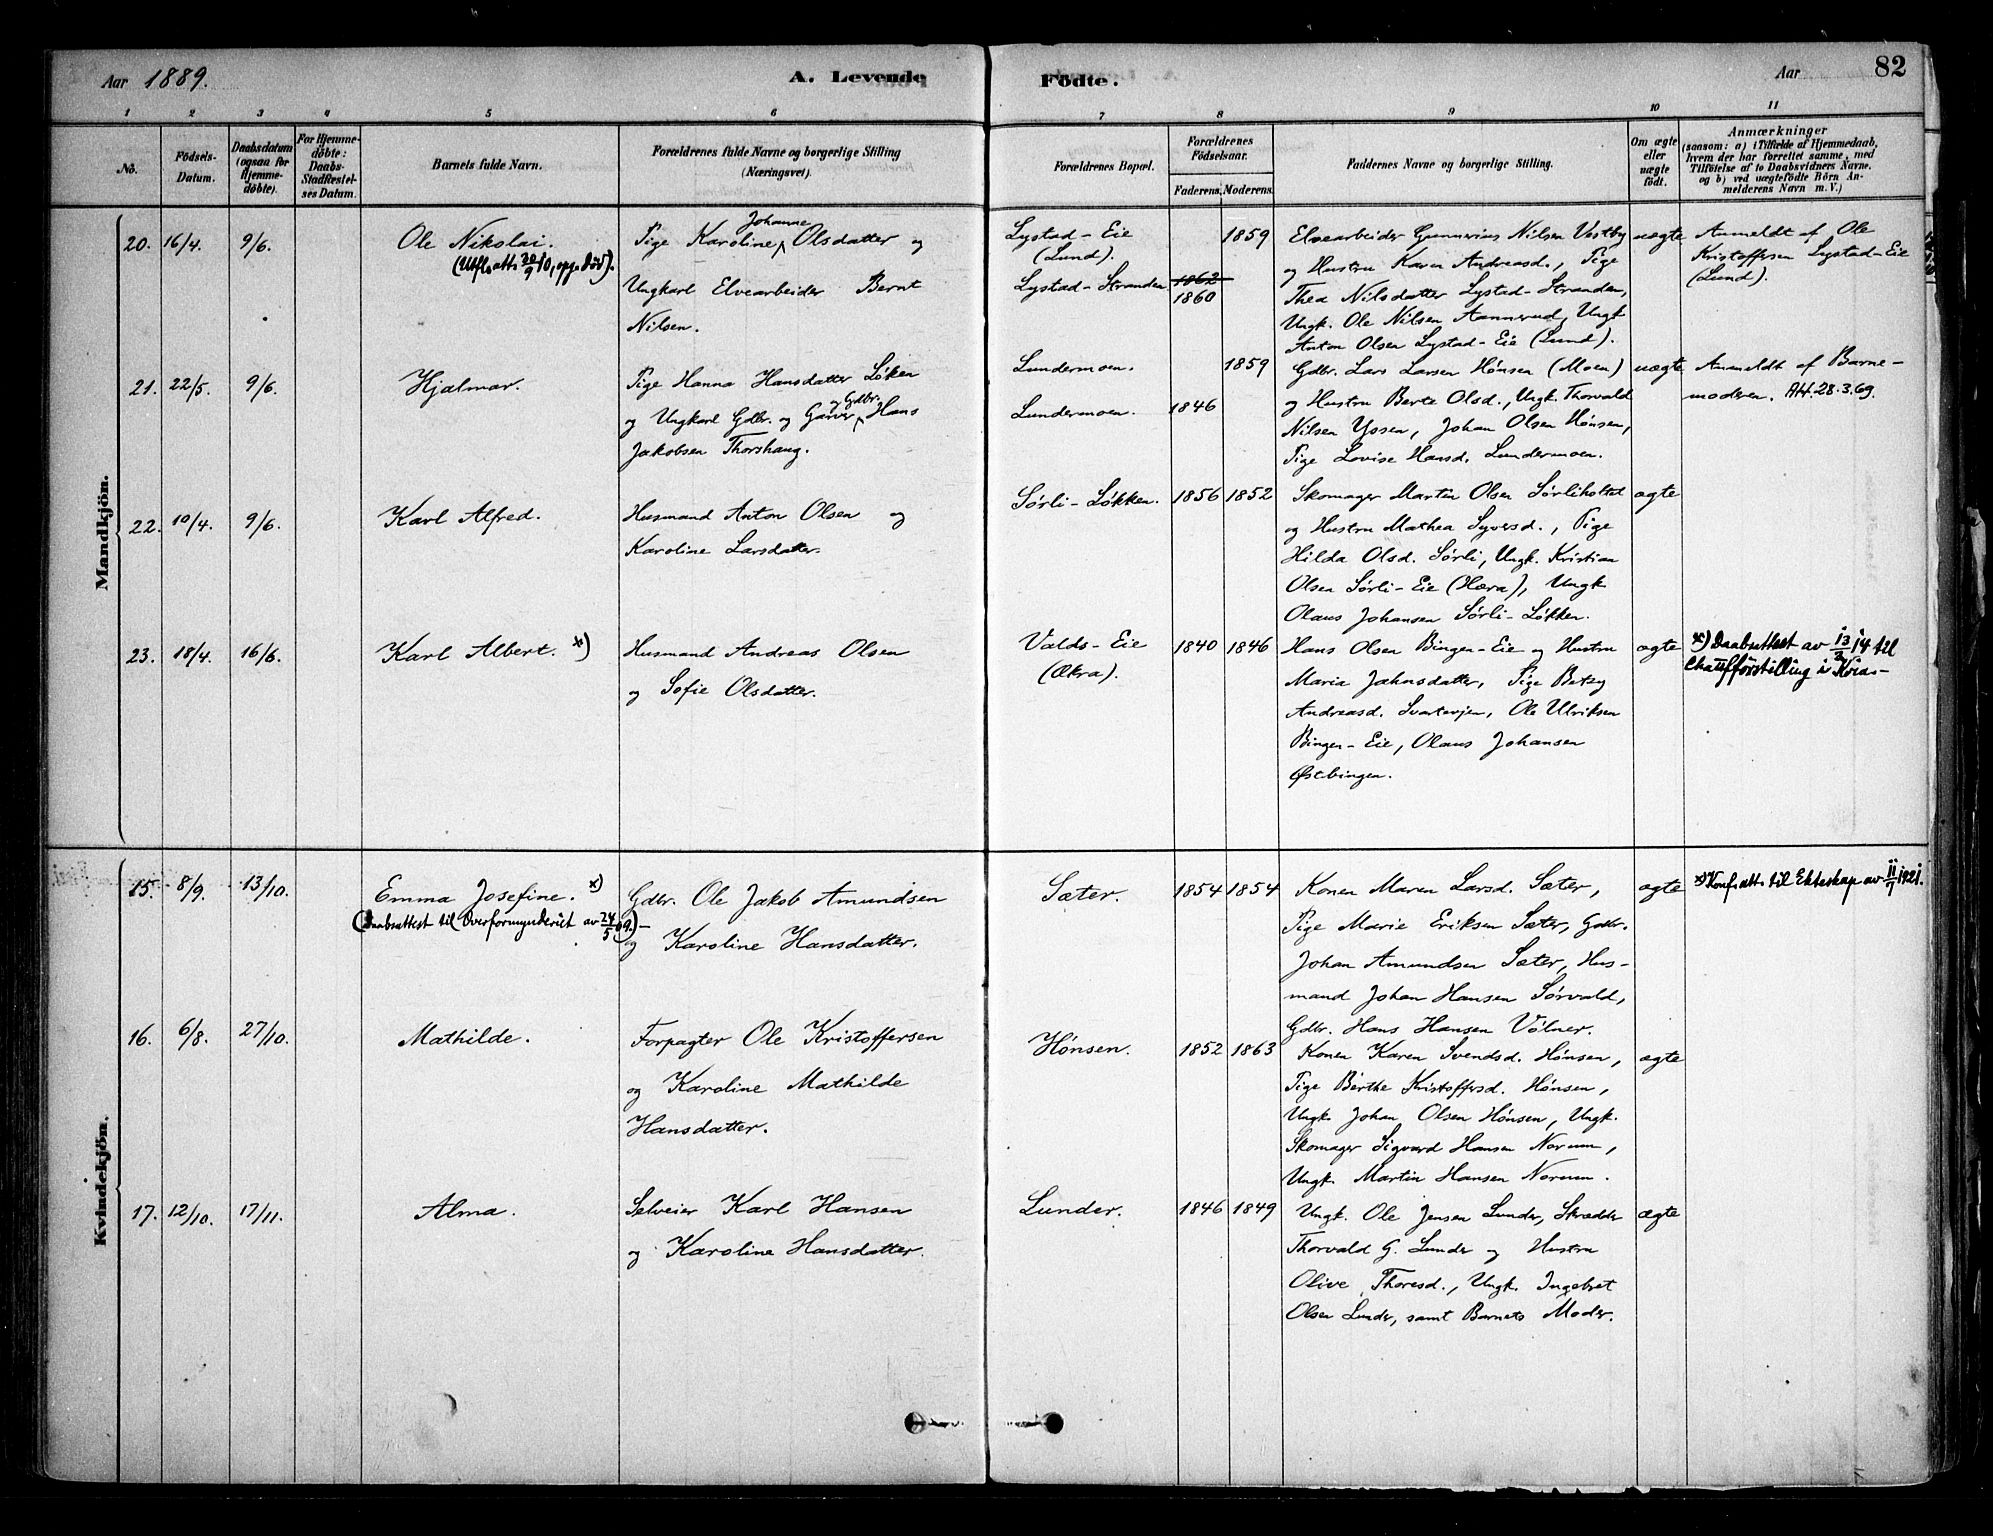 Aar 1889.
A. Levende
Födte.
Aar
82
1 2 3 4 5 6
7 8 9 10 11
No.
Födsels-
Datum.
Daabsdatum
(ogsaa for
Hjemme-
döbte).
For Hjemme-
döbte:
Daabs-
Stadfæstel-
ses Datum.
Barnets fulde Navn.
Forældrenes fulde Navne og borgerlige Stilling
(Næringsvei).
Forældrenes Bopæl.
Forældrenes
Födselsaar.
Faderens. Moderens.
Faddernes Navne og borgerlige Stilling.
Om ægte
eller
uægte
födt.
Anmærkninger
(saasom: a) i Tilfælde af Hjemmedaab,
hvem der har forrettet samme, med
Tilföielse af to Daabsvidners Navne.
og b) ved uægtefödte Börn An-
melderens Navn m. V.)
Mandkjön.
20. 16/4. 9/6.
Ole Nikolai.
(Utfl.att. 20/9 10, opg. död).
Johanne
Pige Karoline Olsdatter og
Ungkarl Elvearbeider Bernt
Nilsen.
Lystad-Eie
(Lund).
Lystad-Stranden
1859
1862
1860
Elvearbeider Gunnerius Nilsen Vestby
og Hustru Karen Andreasd., Pige
Thea Nilsdatter Lystad-Stranden,
Ungk. Ole Nilsen Aannerud, Ungk.
Anton Olsen Lystad-Eie (Lund).
uægte
Anmeldt af Ole
Kristoffersen Lystad-Eie
(Lund).
21. 22/5. 9/6.
Hjalmar.
Pige Hanna Hansdatter Løken
og Gdbr.
og Ungkarl Gdbr. og Garver Hans
Jakobsen Thorshaug.
Lundermoen.
Lundermoen.
1859
1846
Gdbr. Lars Larsen Hønsen (Moen)
og Hustru Berte Olsd., Ungk. Thorvald
Nilsen Yssen, Johan Olsen Hønsen,
Pige Lovise Hansd. Lundermoen.
uægte
Anmeldt af Barne-
moderen. Att. 28.3.69.
22. 10/4. 9/6.
Karl Alfred.
Husmand Anton Olsen og
Karoline Larsdatter.
Sørli-Løkken.
1856 1852
Skomager Martin Olsen Sørliholtet
og Hustru Mathea Syversd., Pige
Hilda Olsd. Sørli, Ungk. Kristian
Olsen Sørli-Eie (Hæra), Ungk.
Olaus Johansen Sørli-Løkken.
ægte
23. 18/4. 16/6.
Karl Albert. x)
Husmand Andreas Olsen
og Sofie Olsdatter.
Valds-Eie
(Økra).
1840 1846
Hans Olsen Bingen-Eie og Hustru
Maria Jahnsdatter, Pige Betzy
Andreasd. Svartevjen, Ole Ulriksen
Bingen-Eie, Olaus Johansen
Østbingen.
ægte
x) Daabsattest av 13/2 14 til
Chaufførstilling i Kria-
Kvindekjön.
15. 8/9. 13/10.
Emma Josefine. x)
(Daabsattest til Overformynderiet av 24/5 09.)
Gdbr. Ole Jakob Amundsen
og Karoline Hansdatter.
Sæter.
1854 1854
Konen Maren Larsd. Sæter,
Pige Marie Eriksen Sæter, Gdbr.
Johan Amundsen Sæter, Hus-
mand Johan Hansen Sørvald,
Gdbr. Hans Hansen Vølner.
ægte
x) Konf.att. til Ekteskap av 11/7 1921.
16. 6/8. 27/10.
Mathilde.
Forpagter Ole Kristoffersen
og Karoline Mathilde
Hansdatter.
Hønsen.
1852 1863
Konen Karen Svendsd. Hønsen,
Pige Berthe Kristoffersd. Hønsen,
Ungk. Johan Olsen Hønsen, Ungk.
Skomager Sigvard Hansen Norum,
Ungk. Martin Hansen Norum.
ægte
17. 12/10. 17/11.
Alma.
Selveier Karl Hansen
og Karoline Hansdatter.
Lunder.
1846 1849
Ungk. Ole Jensen Lunder, Skrædder
Thorvald G. Lunder og Hustru
Olive Thoresd., Ungk. Ingebret
Olsen Lunder, samt Barnets Moder.
ægte